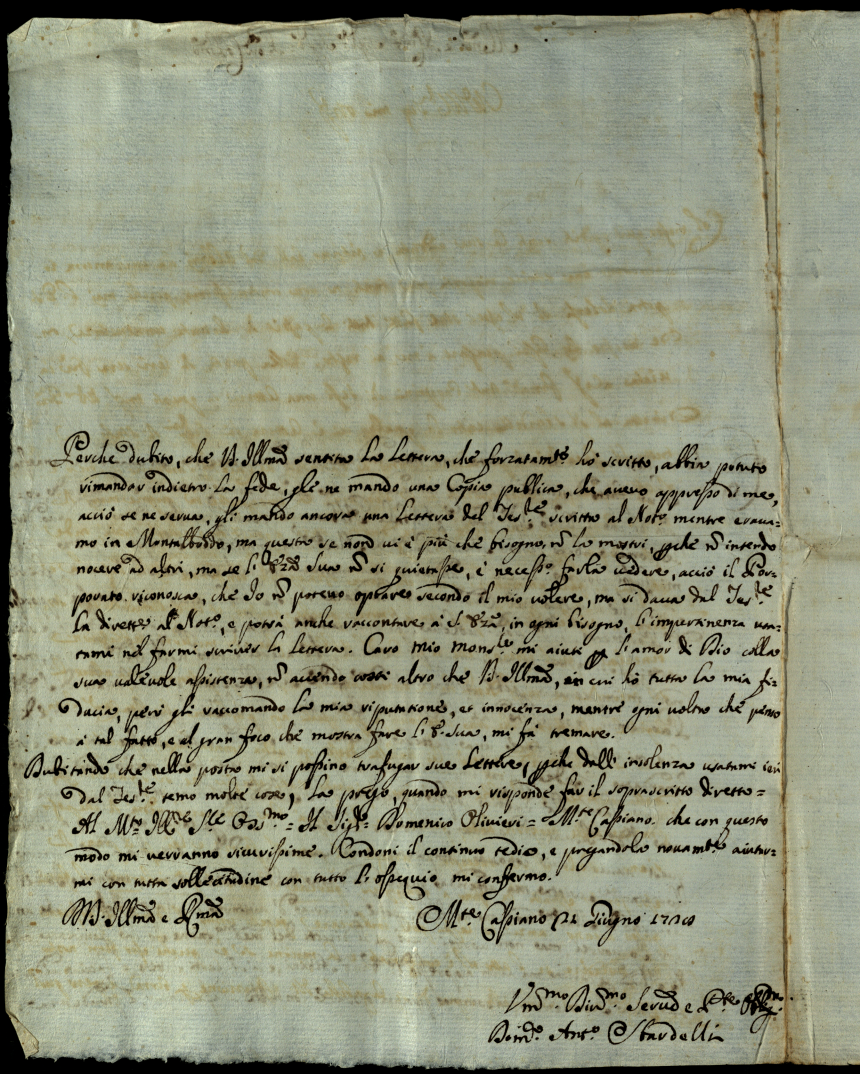 Perche dubito, che V. Illma sentita la lettera, che forzatamte hò scritto, abbia potuto
rimandar indietro la fede, gle ne mando una Copia publica, che avevo appresso di me,
acciò se ne serva, gli mando ancora una Lettera del Teste scritta al Noto mentre erava-
mo in Montalboddo, ma questa se non vi è più che bisogno, nõ la mostri, pche nõ intendo
nocere ad altri, ma se l' Sua nõ si quietasse, è necesso farla vedere, acciò il Por-
porato riconosca, che Io nõ potevo oprare secondo il mio volere, ma si dava dal Teste
la diretta al Noto, e potrà anche raccontare à in ogni bisogno, l'impertinenza usa-
tami nel farmi scriver la lettera. Caro mio Monsre mi aiuti p l'amor di Dio colla
sua valevole assistenza, nõ avendo costì altro che V. Illma, in cui hò tutta la mia fi-
ducia, però gli raccomando la mia riputatione, et innocenza, mentre ogni volta che penso
à tal fatto, e al gran foco che mostra fare l' Sua, mi fà tremare.
Dubitando che nella posta mi si possino trafugar sue lettere, pche dall' insolenza usatami ieri
dal Teste temo molte cose, La prego, quando mi risponde far il soprascritto diretto=
Al Mto Illre Sre Ossmo= Il Sigr Domenico Olivieri= Mte Cassiano. che con questo
modo mi verranno sicurissime. Condoni il continuo tedio, e pregandola novamte aiutar-
mi con tutta sollecitudine con tutto l'ossequio mi confermo.
D V. Illma e Rma
Mte Cassiano 21 Giugno
Vmmo Divmo Servre e
Domo Anto Stardelli